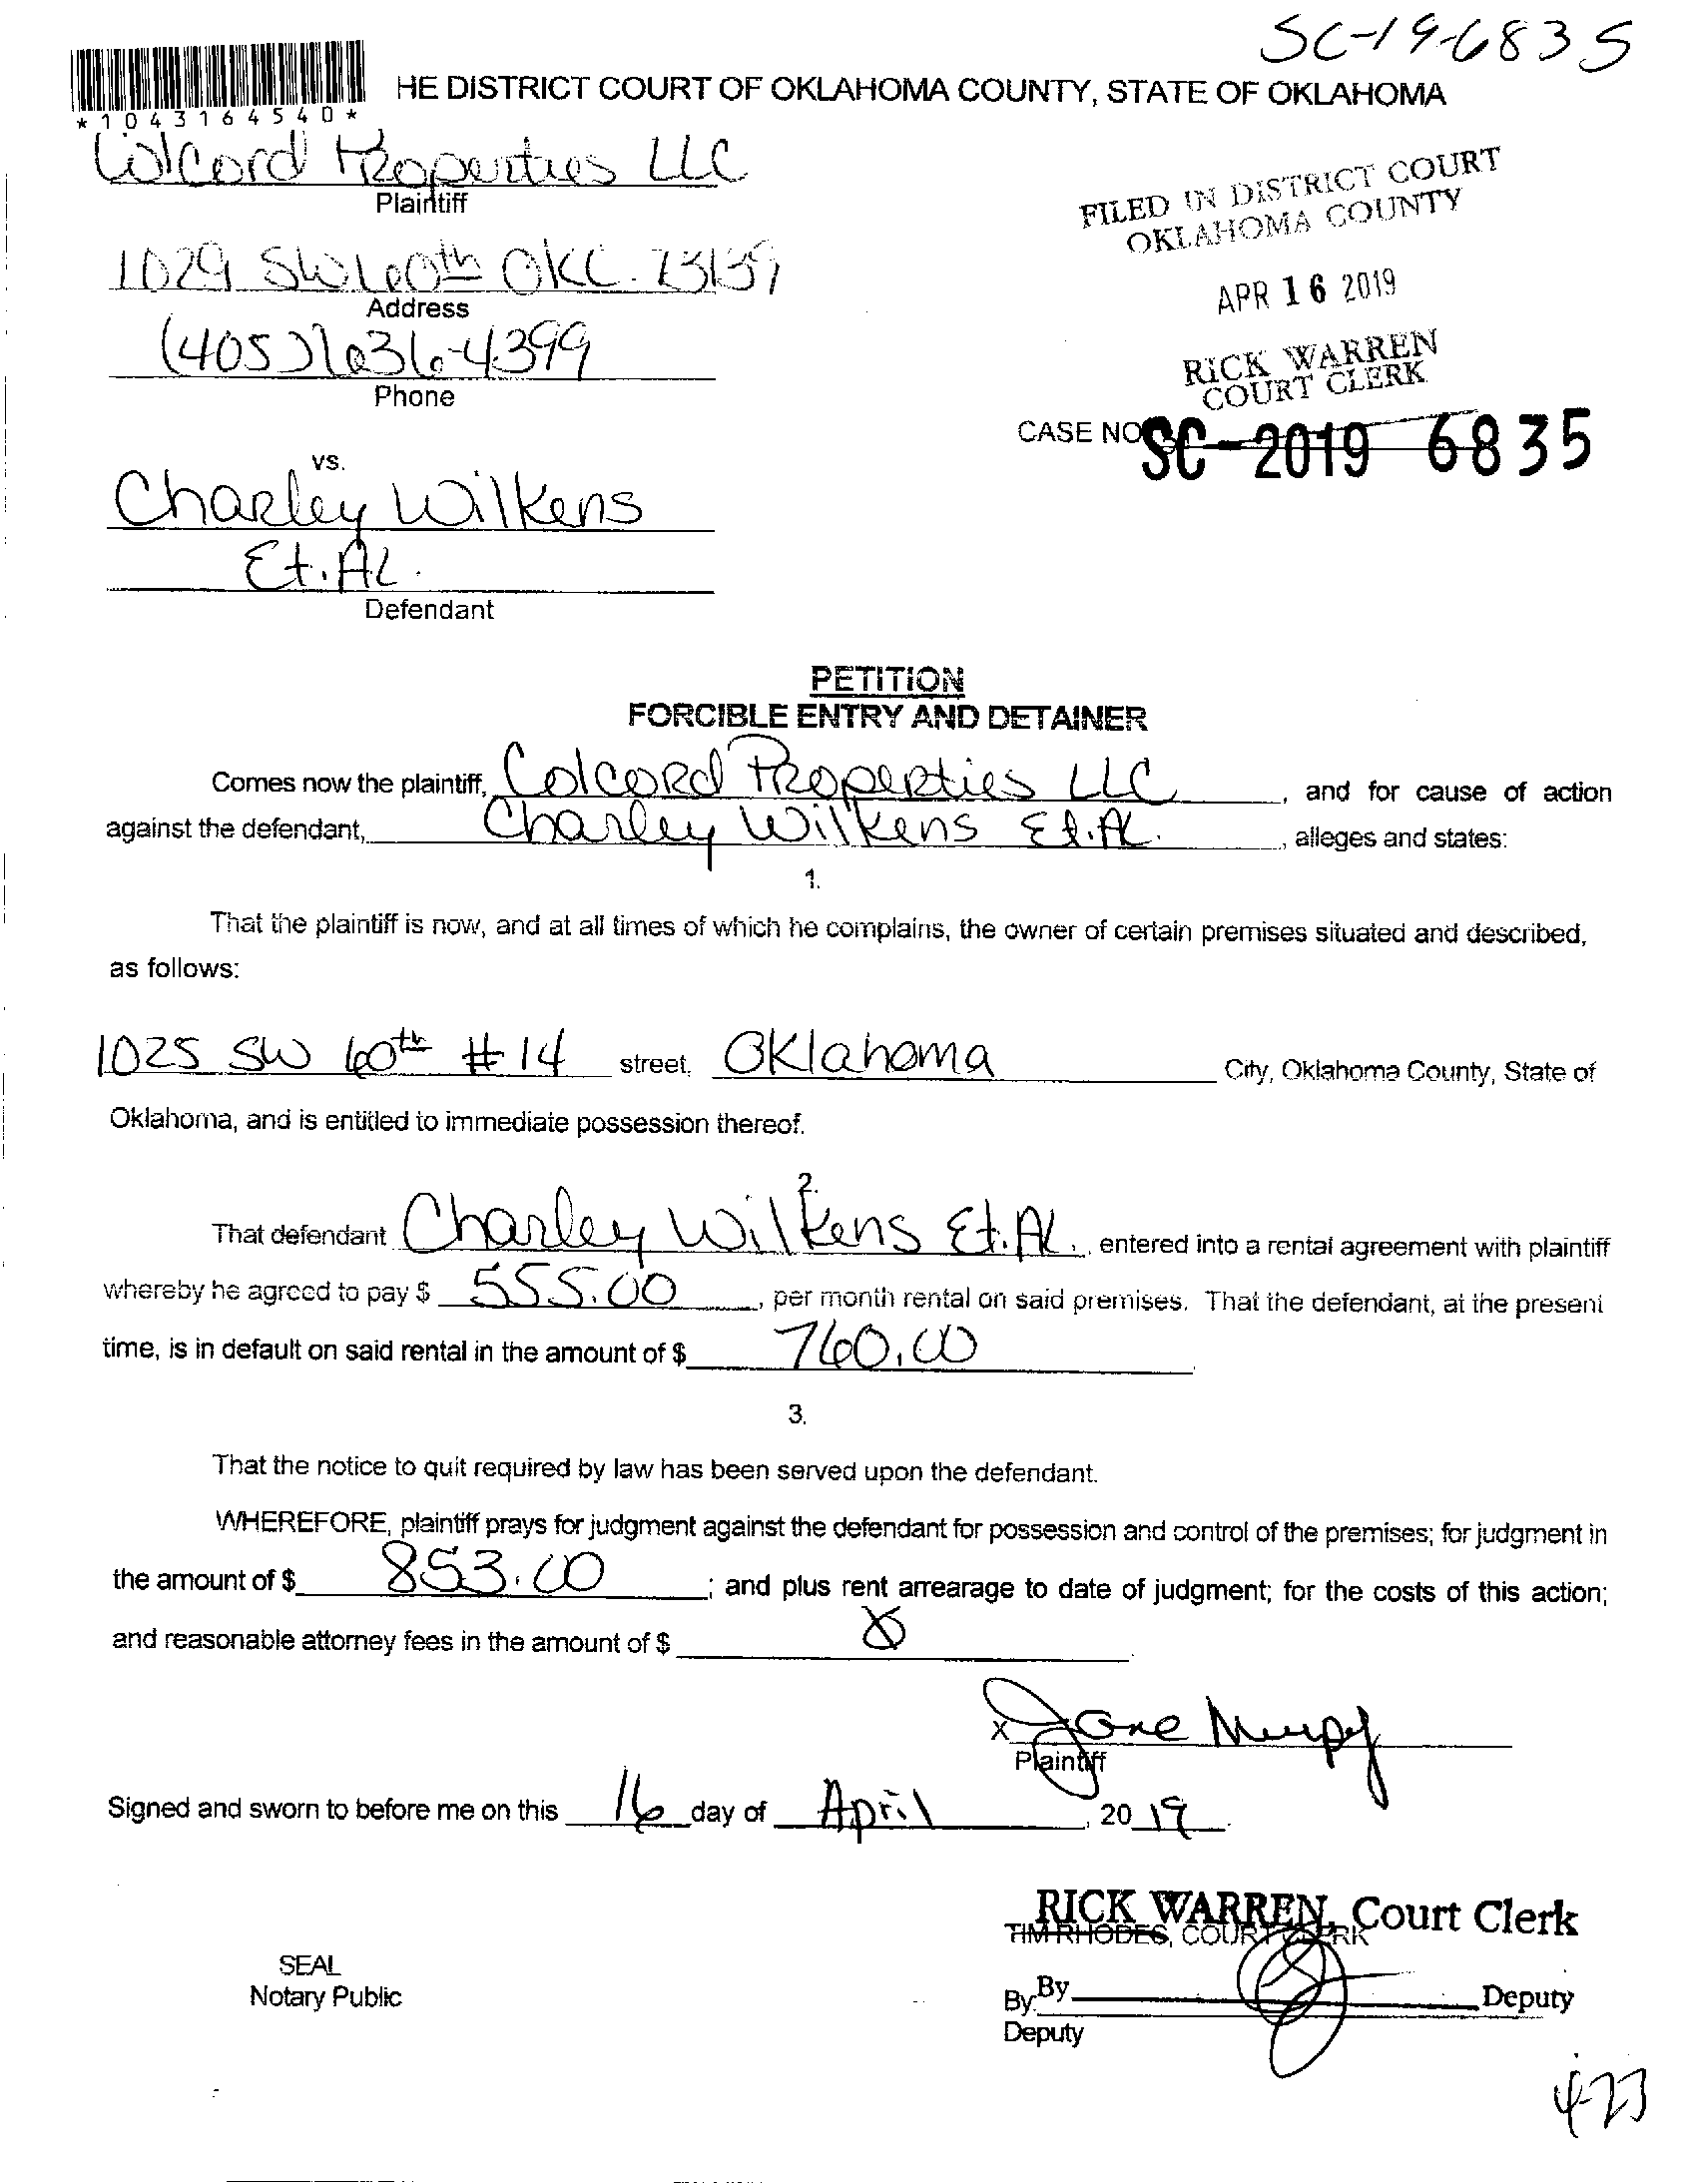 SC-19-6835
HE DISTRICT COURT OF OKLAHOMA COUNTY, STATE OF OKLAHOMA
*1043164540*
Colcord Properties LLC
Plaintiff
FILED IN DISTRICT COURT
OKLAHOMA COUNTY
1029 SW 60th OKC. 73139
Address
APR 16 2019
(405) 636-4399
Phone
RICK WARREN
COURT CLERK
CASE NO SC-2019 6835
vs.
Charley Wilkens
Et. AL.
Defendant
PETITION
FORCIBLE ENTRY AND DETAINER
Comes now the plaintiff, Colcord Properties LLC, and for cause of action
against the defendant, Charley Wilkens Et. AL., alleges and states:
1.
That the plaintiff is now, and at all times of which he complains, the owner of certain premises situated and described,
as follows:
1025 SW 60th #14 street, Oklahoma City, Oklahoma County, State of
Oklahoma, and is entitled to immediate possession thereof.
2.
That defendant Charley Wilkens Et. AL., entered into a rental agreement with plaintiff
whereby he agreed to pay $ 555.00, per month rental on said premises. That the defendant, at the present
time, is in default on said rental in the amount of $ 760.00
3.
That the notice to quit required by law has been served upon the defendant.
WHEREFORE, plaintiff prays for judgment against the defendant for possession and control of the premises; for judgment in
the amount of $ 853.00; and plus rent arrearage to date of judgment; for the costs of this action;
and reasonable attorney fees in the amount of $
X Jane Murpy
Plaintiff
Signed and sworn to before me on this 16 day of April, 2019.
RICK WARREN, Court Clerk
TIM RHODES, COURT CLERK
SEAL
Notary Public
By By Deputy
Deputy
4-23